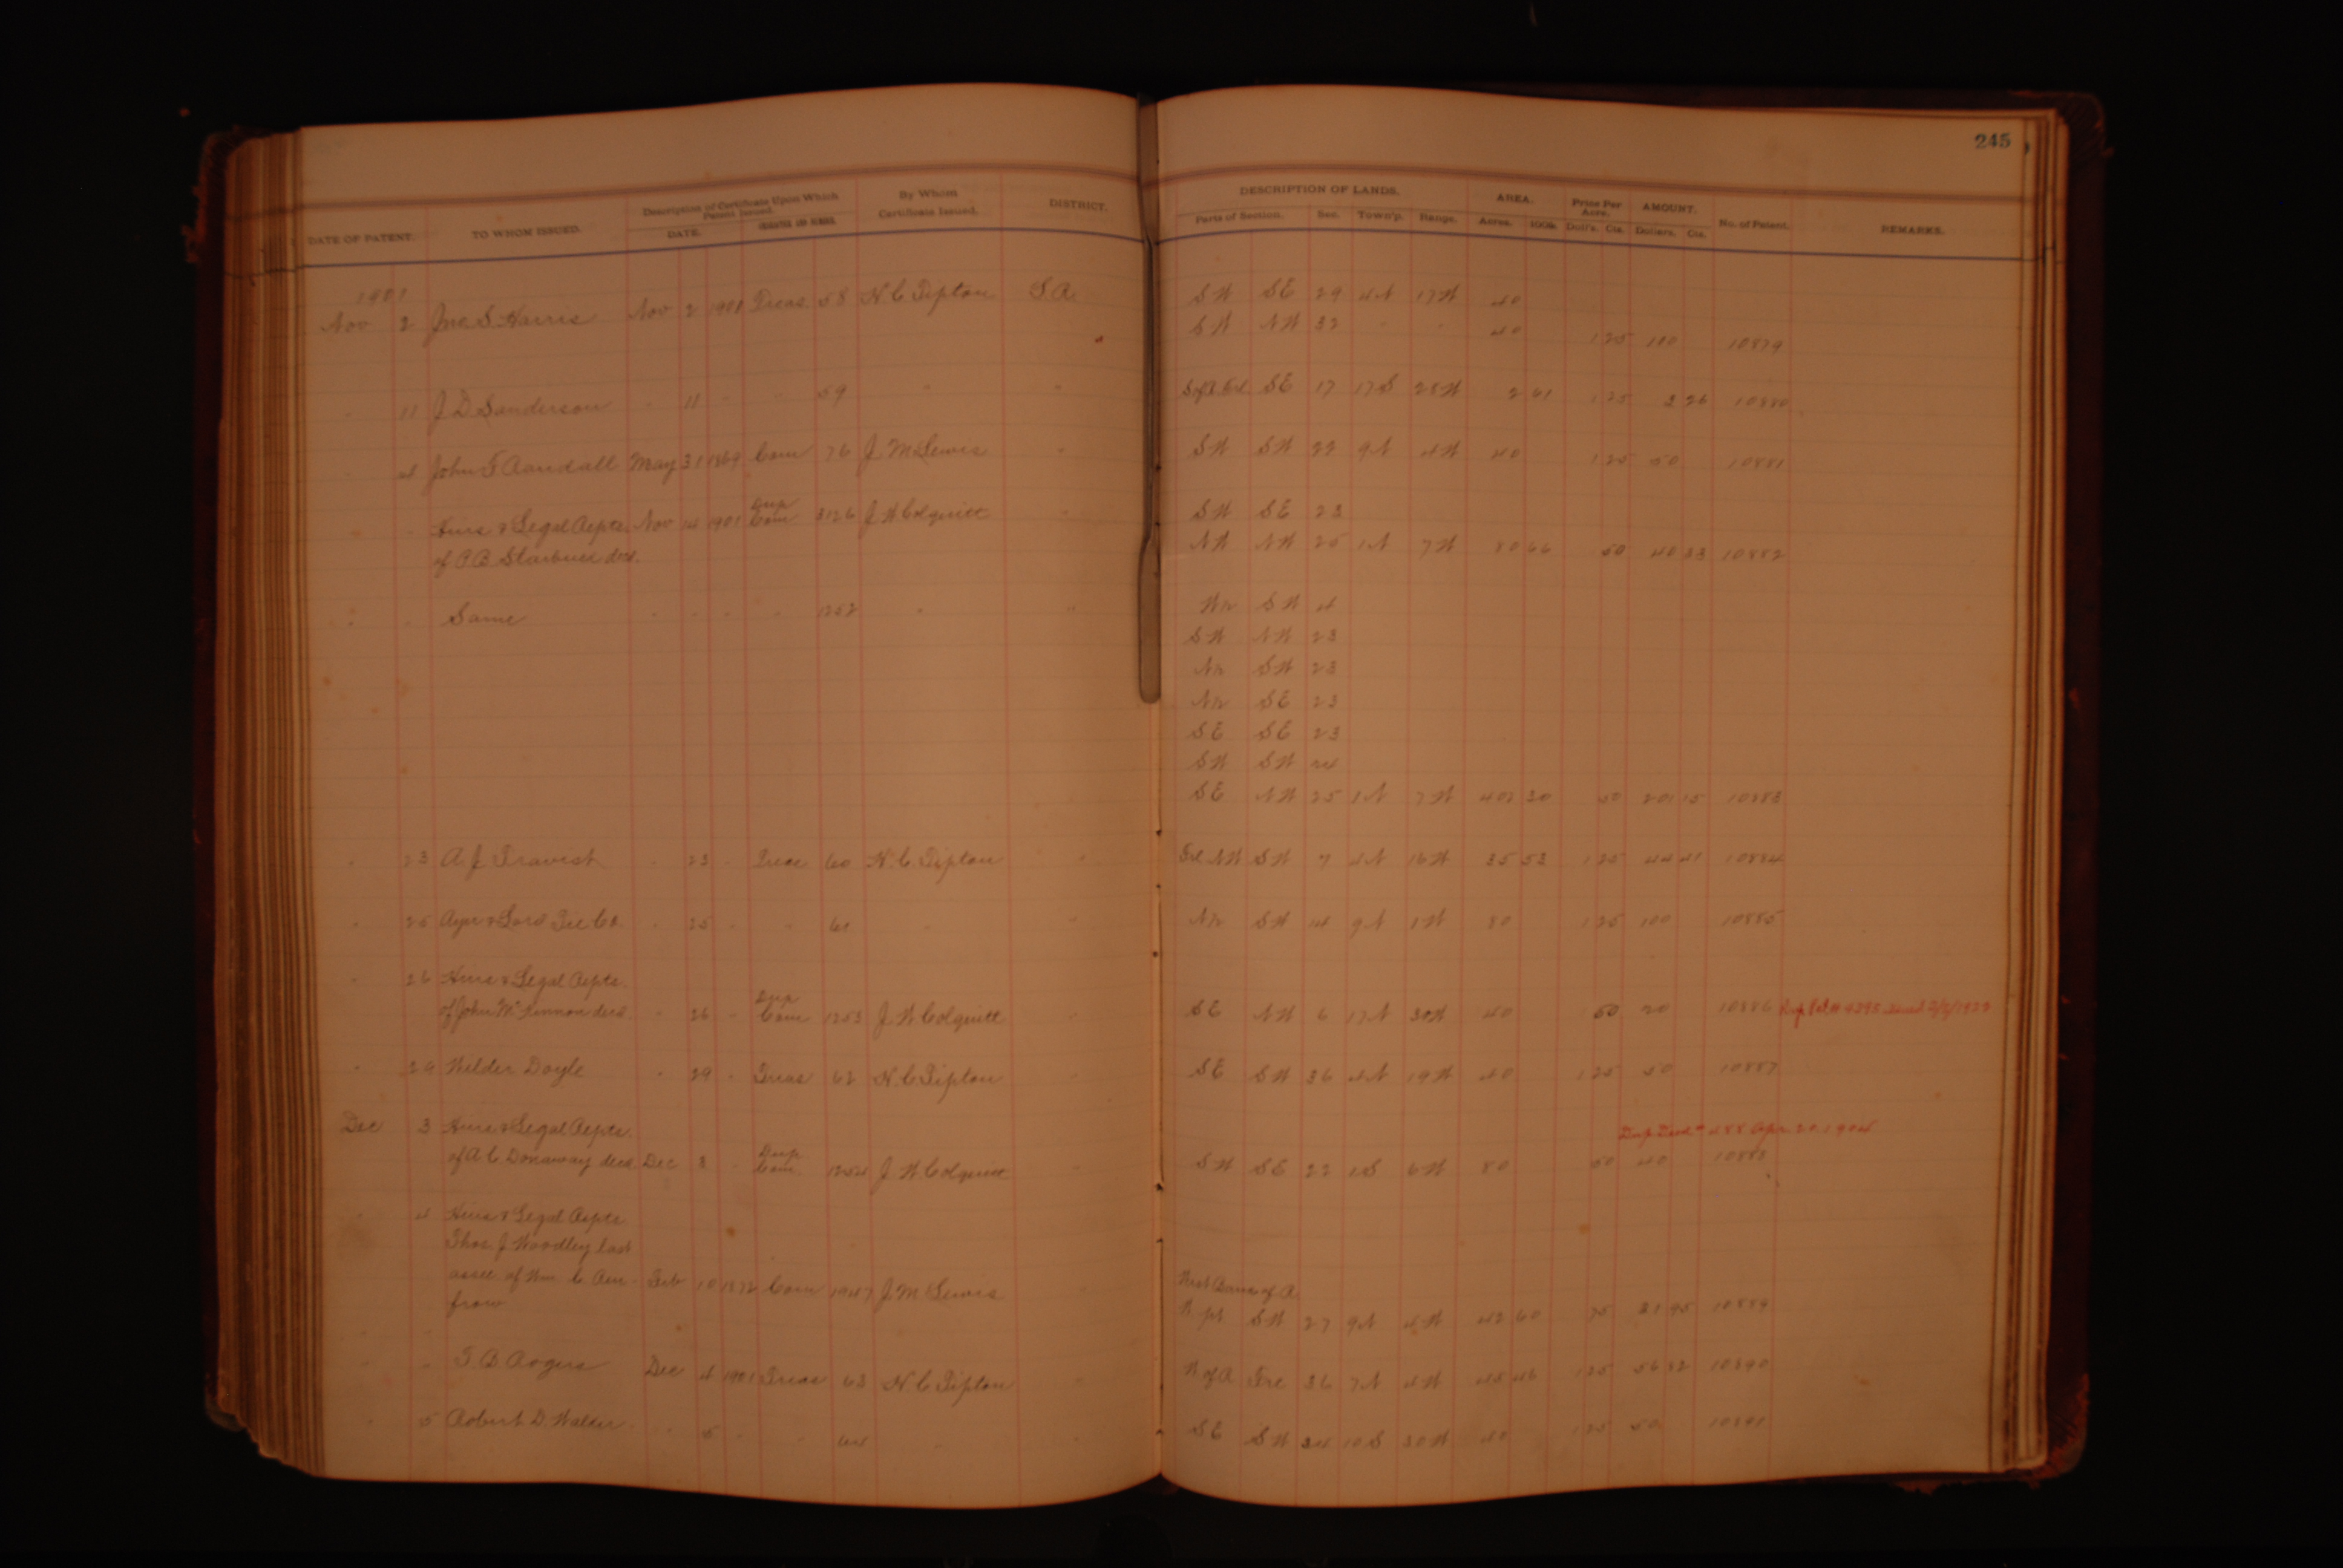 245
DATE OF PATENT. TO WHOM ISSUED. Description of Certificate Upon Which Patent Issued. DATE. By Whom Certificate Issued. DISTRICT. DESCRIPTION OF LANDS. Parts of Section. Sec. Town'p. Range. AREA. Acres. 100th. Price Per Acre. Doll's. Cts. AMOUNT. Dollars. Cts. No. of Patent. REMARKS.
1901
Nov 2 Jno. S. Harris Nov 2 1901 Treas 58 N C Tipton S.R. SW SE 29 4N 17W 40
SW NW 32 " " 40 1 25 100 10879
" 11 J D Sanderson " 11 " " 59 " " SE 17 17S 28W 2 61 1 25 3 26 10880
" John F Randall May 31 1869 Com 76 J M Lewis " SW SW 22 9N 4W 40 1 25 50 10881
" " Heirs & Legal Repts. Nov 14 1901 Dup Com 3126 J W Colquitt " SW SE 23
of P.B. Starbuck decd. NW NW 25 1N 7W 80 66 50 40 33 10882
" " Same " " " " 1252 " " W½ SW 4
SW NW 23
N½ SW 23
N½ SE 23
SE SE 23
SW SW 24
SE NW 25 1N 7W 402 30 50 201 15 10883
" 23 A. J. Travis " 23 " Treas 60 N. C. Tipton " Frl NW SW 7 4N 16W 35 53 1 25 44 41 10884
" 25 Ayer & Lord Tie Co. " 25 " " 61 " " N½ SW 14 9N 1W 80 1 25 100 10885
" 26 Heirs & Legal Repts.
of John McKinnon decd " 26 " Dup Com 1253 J W Colquitt " SE NW 6 17N 30W 40 50 20 10886
" 29 Wilder Doyle " 29 " Treas 62 N. C Tipton " SE SW 36 4N 19W 40 1 25 50 10887
Dec 3 Heirs & Legal Repts. Apr. 20. 1904
of A C Donaway decd Dec 3 " Dup Com 1254 J W. Colquitt " SW SE 22 1S 6W 80 50 40 10888
" 4 Heirs & Legal Repts
Thos J Woodley last
assee of Wm C Ren- Feb 10 1872 Com 1047 J M Lewis " West Bank of R
frow W. pt SW 27 9N 4W 42 60 75 31 95 10889
" " T. B. Rogers Dec 4 1901 Treas 63 N. C Tipton " W of R Frc 36 7N 4W 45 46 1 25 56 82 10890
" 5 Robert D. Walder " 5 " " 64 " " SE SW 34 10S 30W 40 1 25 50 10891